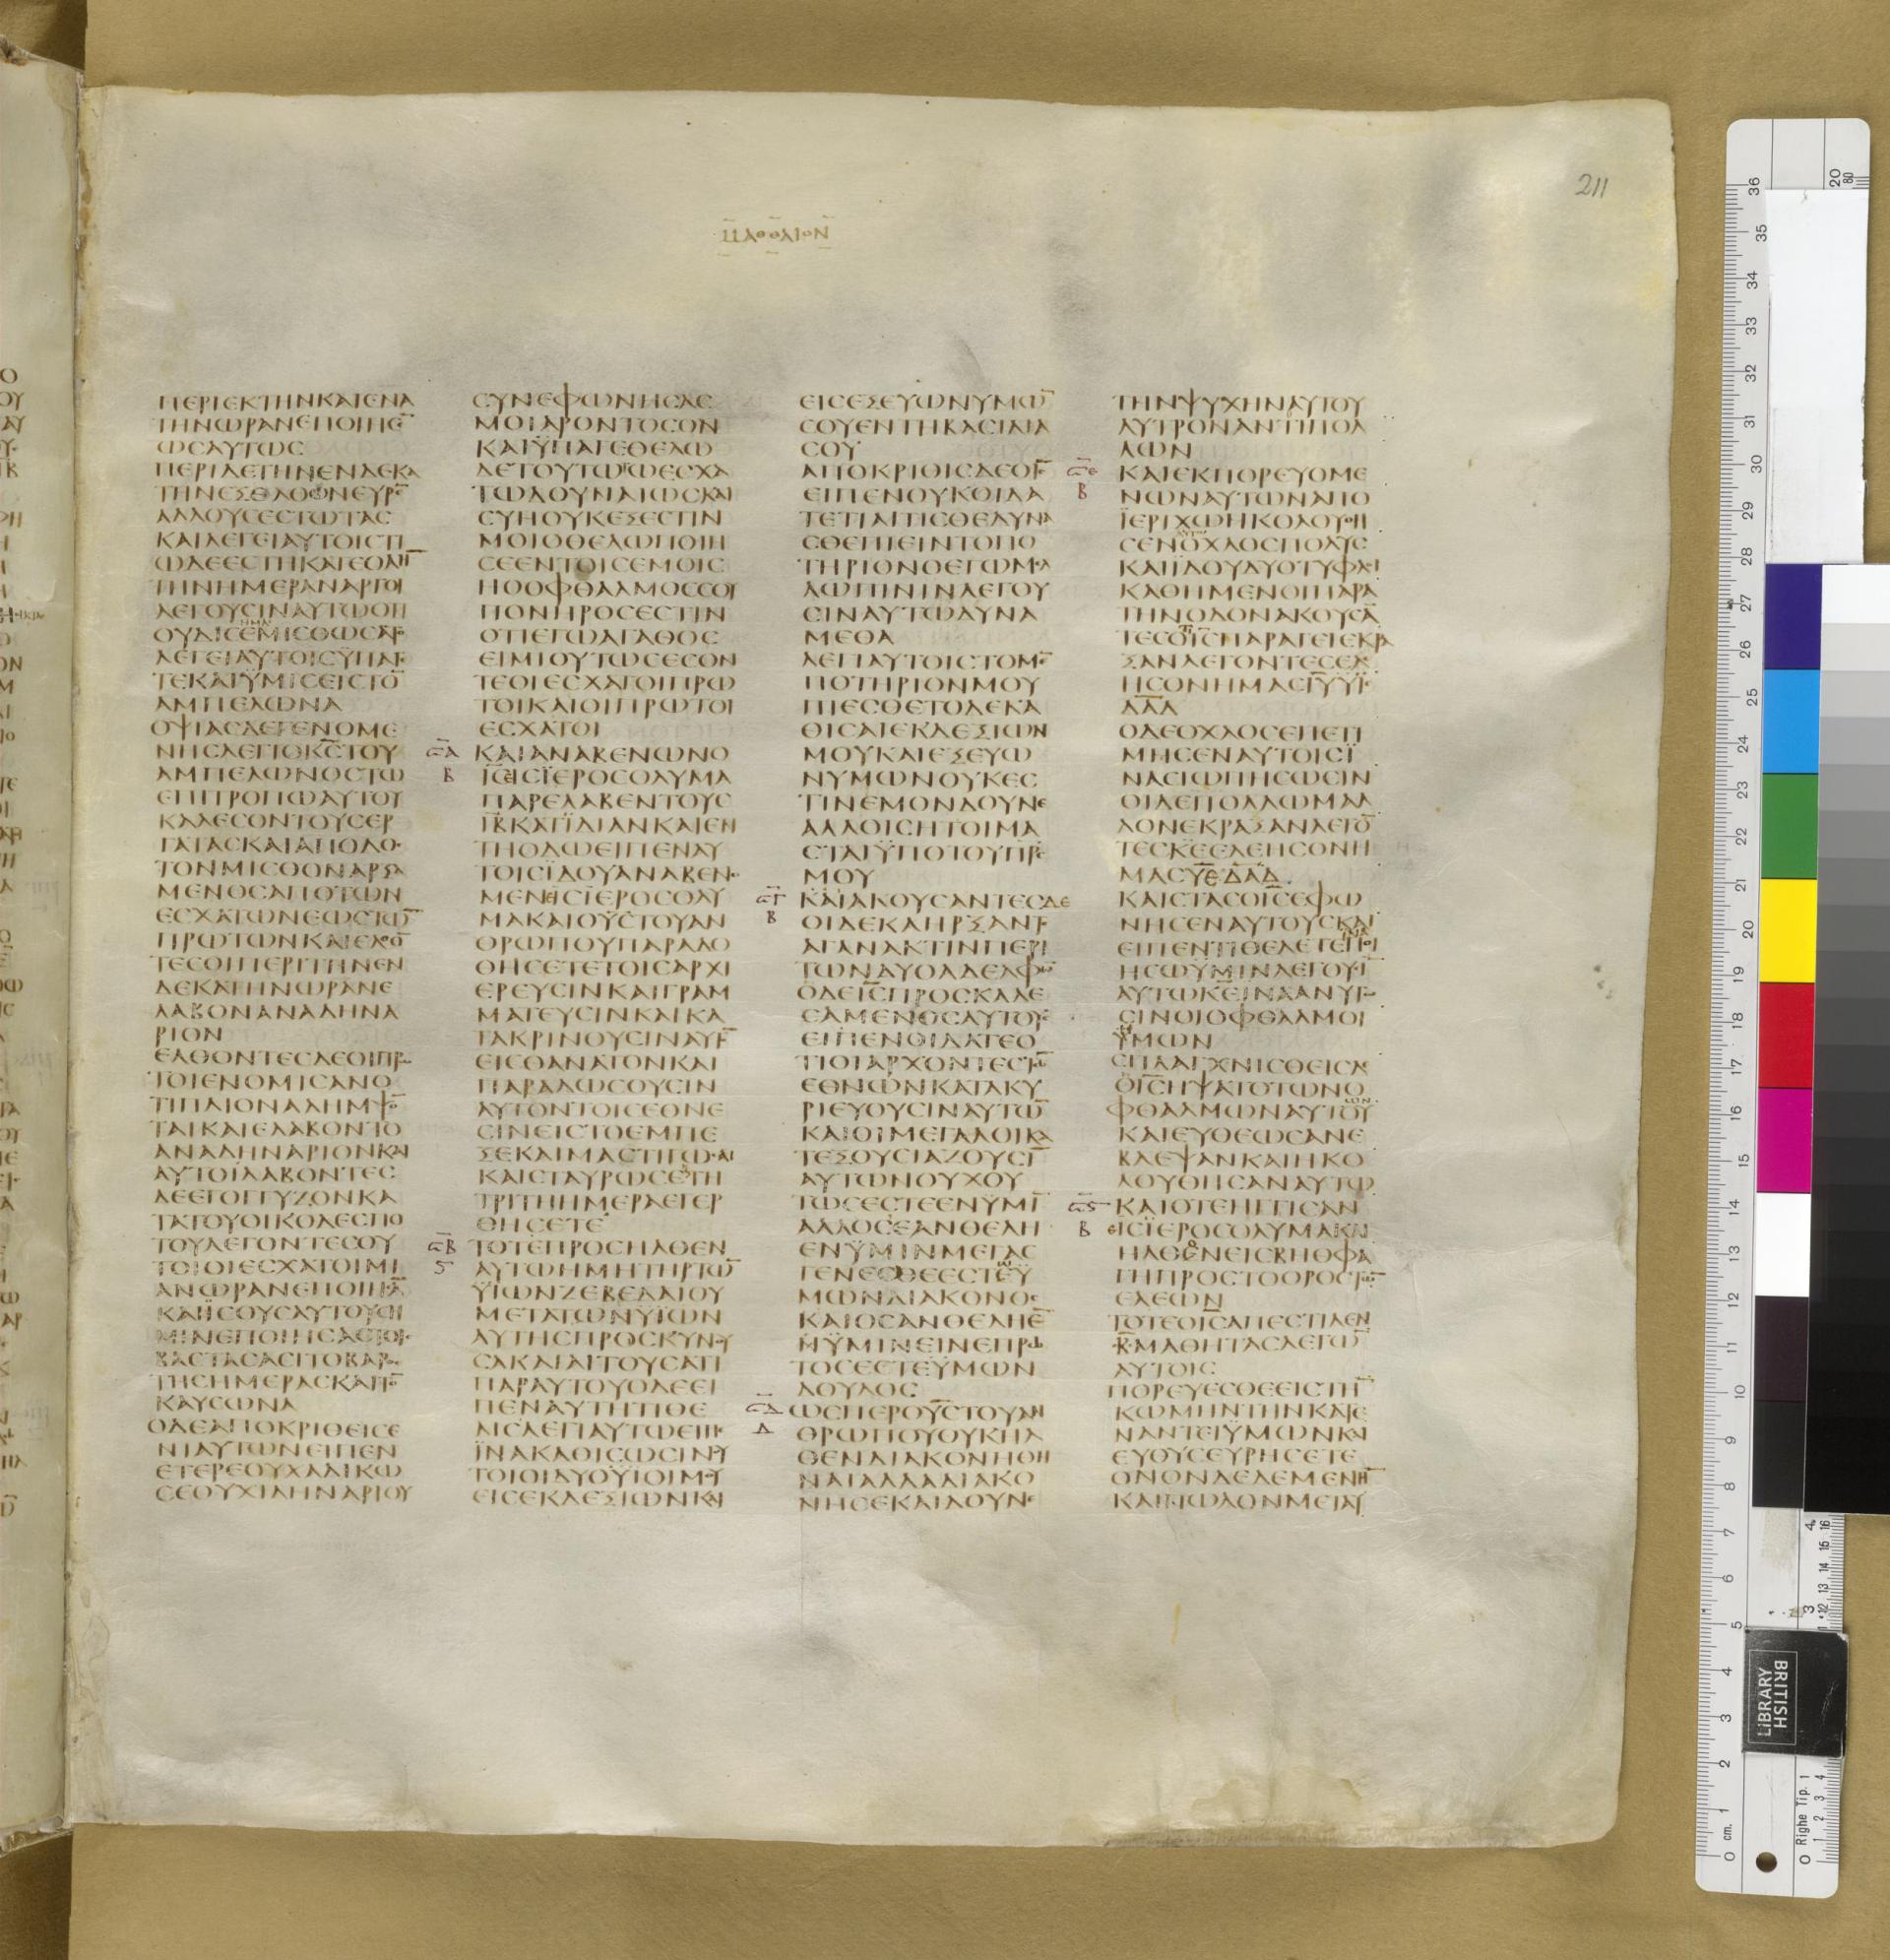 211
ΜΑΘΘΑΙΟΝ
ΠΕΡΙΕΚΤΗΝΚΑΙΕΝΑ
ΤΗΝΩΡΑΝΕΠΟΙΗϹΕ̅
ΩϹΑΥΤΩϹ
ΠΕΡΙΔΕΤΗΝΕΝΔΕΚΑ
ΤΗΝΕΞΕΛΘΩΝΕΥΡΕ̅
ΑΛΛΟΥϹΕϹΤΩΤΑϹ
ΚΑΙΛΕΓΕΙΑΥΤΟΙϹΤΙ
ΩΔΕΕϹΤΗΚΑΤΕΟΛΗ̅
ΤΗΝΗΜΕΡΑΝΑΡΓΟΙ
ΛΕΓΟΥϹΙΝΑΥΤΩΟΤΙ
ΟΥΔΙϹΕΜΙϹΘΩϹΑΤΟ
ΛΕΓΕΙΑΥΤΟΙϹΫΠΑΓΕ
ΤΕΚΑΙΫΜΙϹΕΙϹΤΟ̅
ΑΜΠΕΛΩΝΑ
ΟΨΙΑϹΔΕΓΕΝΟΜΕ
ΝΗϹΛΕΓΙΟΚ̅Ϲ̅ΤΟΥ
ΑΜΠΕΛΩΝΟϹΤΩ
ΕΠΙΤΡΟΠΩΑΥΤΟΥ
ΚΑΛΕϹΟΝΤΟΥϹΕΡ
ΓΑΤΑϹΚΑΙΑΠΟΔΟϹ
ΤΟΝΜΙϹΘΟΝΑΡΞΑ
ΜΕΝΟϹΑΠΟΤΩΝ
ΕϹΧΑΤΩΝΕΩϹΤΩ̅
ΠΡΩΤΩΝΚΑΙΕΛΘΟ̅
ΤΕϹΟΙΠΕΡΙΤΗΝΕΝ
ΔΕΚΑΤΗΝΩΡΑΝΕ
ΛΑΒΟΝΑΝΑΔΗΝΑ
ΡΙΟΝ
ΕΛΘΟΝΤΕϹΔΕΟΙΠΡΩ
ΤΟΙΕΝΟΜΙϹΑΝΟ
ΤΙΠΛΙΟΝΑΛΗΜΨΟ̅
ΤΑΙΚΑΙΕΛΑΒΟΝΤΟ
ΑΝΑΔΗΝΑΡΙΟΝΚΑΙ
ΑΥΤΟΙΛΑΒΟΝΤΕϹ
ΔΕΕΓΟΓΓΥΖΟΝΚΑ
ΤΑΤΟΥΟΙΚΟΔΕϹΠΟ
ΤΟΥΛΕΓΟΝΤΕϹΟΥ
ΤΟΙΟΙΕϹΧΑΤΟΙΜΙ
ΑΝΩΡΑΝΕΠΟΙΗϹΑ̅
ΚΑΙΪϹΟΥϹΑΥΤΟΥϹΗ
ΜΙΝΕΠΟΙΗϹΑϹΤΟΙϹ
ΒΑϹΤΑϹΑϹΙΤΟΒΑΡΟϹ
ΤΗϹΗΜΕΡΑϹΚΑΙΤΟ̅
ΚΑΥϹΩΝΑ
ΟΔΕΑΠΟΚΡΙΘΕΙϹΕ
ΝΙΑΥΤΩΝΕΙΠΕΝ
ΕΤΕΡΕΟΥΚΑΔΙΚΩ
ϹΕΟΥΧΙΔΗΝΑΡΙΟΥ
ϹΥΝΕΦΩΝΗϹΑϹ
ΜΟΙΑΡΟΝΤΟϹΟΝ
ΚΑΙΫΠΑΓΕΘΕΛΩ
ΔΕΤΟΥΤΩΤΩΕϹΧΑ
ΤΩΔΟΥΝΑΙΩϹΚΑΙ
ϹΥΗΟΥΚΕΞΕϹΤΙΝ
ΜΟΙΟΘΕΛΩΠΟΙΗ
ϹΕΕΝΤΟΙϹΕΜΟΙϹ
ΗΟΟΦΘΑΛΜΟϹϹΟΥ
ΠΟΝΗΡΟϹΕϹΤΙΝ
ΟΤΙΕΓΩΑΓΑΘΟϹ
ΕΙΜΙΟΥΤΩϹΕϹΟΝ
ΤΕΟΙΕϹΧΑΤΟΙΠΡΩ
ΤΟΙΚΑΙΟΙΠΡΩΤΟΙ
ΕϹΧΑΤΟΙ
ϹΑ
Β
ΚΑΙΑΝΑΒΕΝΩΝΟ
Ι̅Ϲ̅ΕΙϹΪΕΡΟϹΟΛΥΜΑ
ΠΑΡΕΛΑΒΕΝΤΟΥϹ
Ι̅Β̅ΚΑΤΙΔΙΑΝΚΑΙΕΝ
ΤΗΟΔΩΕΙΠΕΝΑΥ
ΤΟΙϹΪΔΟΥΑΝΑΒΕΝΟ
ΜΕΝΕΙϹΪΕΡΟϹΟΛΥ
ΜΑΚΑΙΟΥ̅Ϲ̅ΤΟΥΑΝ
ΘΡΩΠΟΥΠΑΡΑΔΟ
ΘΗϹΕΤΕΤΟΙϹΑΡΧΙ
ΕΡΕΥϹΙΝΚΑΙΓΡΑΜ
ΜΑΤΕΥϹΙΝΚΑΙΚΑ
ΤΑΚΡΙΝΟΥϹΙΝΑΥΤΟ̅
ΕΙϹΘΑΝΑΤΟΝΚΑΙ
ΠΑΡΑΔΩϹΟΥϹΙΝ
ΑΥΤΟΝΤΟΙϹΕΘΝΕ
ϹΙΝΕΙϹΤΟΕΜΠΕ
ΞΕΚΑΙΜΑϹΤΙΓΩϹΑΙ
ΚΑΙϹΤΑΥΡΩϹΕΤΗ
ΤΡΙΤΗΗΜΕΡΑΕΓΕΡ
ΘΗϹΕΤΕ
ϹΒ
Ϛ
ΤΟΤΕΠΡΟϹΗΛΘΕΝ
ΑΥΤΩΗΜΗΤΗΡΤΩ̅
ΫΙΩΝΖΕΒΕΔΑΙΟΥ
ΜΕΤΑΤΩΝΫΙΩΝ
ΑΥΤΗϹΠΡΟϹΚΥΝΟΥ
ϹΑΚΑΙΑΙΤΟΥϹΑΤΙ
ΠΑΡΑΥΤΟΥΟΔΕΕΙ
ΠΕΝΑΥΤΗΤΙΘΕ
ΛΙϹΛΕΓΙΑΥΤΩΕΙΠΕ
ΪΝΑΚΑΘΙϹΩϹΙΝΟΥ
ΤΟΙΟΙΔΥΟΫΙΟΙΜΟΥ
ΕΙϹΕΚΔΕΞΙΩΝΚΑΙ
ΕΙϹΕΞΕΥΩΝΥΜΩ̅
ϹΟΥΕΝΤΗΒΑϹΙΛΙΑ
ϹΟΥ
ΑΠΟΚΡΙΘΙϹΔΕΟΙ̅Ϲ̅
ΕΙΠΕΝΟΥΚΟΙΔΑ
ΤΕΤΙΑΙΤΙϹΘΕΔΥΝΑ
ϹΘΕΠΙΕΙΝΤΟΠΟ
ΤΗΡΙΟΝΟΕΓΩΜΕΛ
ΛΩΠΙΝΙΝΛΕΓΟΥ
ϹΙΝΑΥΤΩΔΥΝΑ
ΜΕΘΑ
ΛΕΓΙΑΥΤΟΙϹΤΟΜΕ̅
ΠΟΤΗΡΙΟΝΜΟΥ
ΠΙΕϹΘΕΤΟΔΕΚΑ
ΘΙϹΑΙΕΚΔΕΞΙΩΝ
ΜΟΥΚΑΙΕΞΕΥΩ
ΝΥΜΩΝΟΥΚΕϹ
ΤΙΝΕΜΟΝΔΟΥΝΕ
ΑΛΛΟΙϹΗΤΟΙΜΑ
ϹΤΑΙΫΠΟΤΟΥΠ̅Ρ̅Ϲ̅
ΜΟΥ
ϹΓ
Β
ΚΑΙΑΚΟΥϹΑΝΤΕϹΔΕ
ΟΙΔΕΚΑΗΡΞΑΝΤΟ
ΑΓΑΝΑΚΤΙΝΠΕΡΙ
ΤΩΝΔΥΟΑΔΕΛΦΩ̅
ΟΔΕΙ̅Ϲ̅ΠΡΟϹΚΑΛΕ
ϹΑΜΕΝΟϹΑΥΤΟΥϹ
ΕΙΠΕΝΟΙΔΑΤΕΟ
ΤΙΟΙΑΡΧΟΝΤΕϹΤΩ̅
ΕΘΝΩΝΚΑΤΑΚΥ
ΡΙΕΥΟΥϹΙΝΑΥΤΩ̅
ΚΑΙΟΙΜΕΓΑΛΟΙΚΑ
ΤΕΞΟΥϹΙΑΖΟΥϹΙ̅
ΑΥΤΩΝΟΥΧΟΥ
ΤΩϹΕϹΤΕΕΝΫΜΙ̅
ΑΛΛΟϹΕΑΝΘΕΛΗ
ΕΝΫΜΙΝΜΕΓΑϹ
ΓΕΝΕϹΘΕΕϹΤΕΫ
ΜΩΝΔΙΑΚΟΝΟϹ
ΚΑΙΟϹΑΝΘΕΛΗΕ̅
ΗΫΜΙΝΕΙΝΕΠΡΩ
ΤΟϹΕϹΤΕΫΜΩΝ
ΔΟΥΛΟϹ
ϹΔ
Δ
ΩϹΠΕΡΟΥ̅Ϲ̅ΤΟΥΑΝ
ΘΡΩΠΟΥΟΥΚΗΛ
ΘΕΝΔΙΑΚΟΝΗΘΗ
ΝΑΙΑΛΛΑΔΙΑΚΟ
ΝΗϹΕΚΑΙΔΟΥΝΕ
ΤΗΝΨΥΧΗΝΑΥΤΟΥ
ΛΥΤΡΟΝΑΝΤΙΠΟΛ
ΛΩΝ
ϹΕ
Β
ΚΑΙΕΚΠΟΡΕΥΟΜΕ
ΝΩΝΑΥΤΩΝΑΠΟ
ΪΕΡΙΧΩΗΚΟΛΟΥΘΗ
ϹΕΝΟΧΛΟϹΠΟΛΥϹ
ΚΑΙΪΔΟΥΔΥΟΤΥΦΛΟΙ
ΚΑΘΗΜΕΝΟΙΠΑΡΑ
ΤΗΝΟΔΟΝΑΚΟΥϹΑ̅
ΤΕϹΟΤΙΙ̅Ϲ̅ΠΑΡΑΓΕΙΕΚΡΑ
ΞΑΝΛΕΓΟΝΤΕϹΕΛΕ
ΗϹΟΝΗΜΑϹΙ̅Υ̅ΫΙΕ
Δ̅Α̅Δ̅
ΟΔΕΟΧΛΟϹΕΠΕΤΙ
ΜΗϹΕΝΑΥΤΟΙϹΪ
ΝΑϹΙΩΠΗϹΩϹΙΝ
ΟΙΔΕΠΟΛΛΩΜΑΛ
ΛΟΝΕΚΡΑΞΑΝΛΕΓΟ̅
ΤΕϹΚ̅Ε̅ΕΛΕΗϹΟΝΗ
ΜΑϹΥ̅Ε̅Δ̅Α̅Δ̅
ΚΑΙϹΤΑϹΟΙ̅Ϲ̅ΕΦΩ
ΝΗϹΕΝΑΥΤΟΥϹΚΑΙ
ΕΙΠΕΝΤΙΘΕΛΕΤΕΠΟΙ
ΗϹΩΫΜΙΝΛΕΓΟΥϹΙ̅
ΑΥΤΩΚ̅Ε̅ΙΝΑΑΝΥΓΩ
ϹΙΝΟΙΟΦΘΑΛΜΟΙ
ΫΜΩΝ
ϹΠΛΑΓΧΝΙϹΘΕΙϹΔΕ
ΟΙ̅Ϲ̅ΗΨΑΤΟΤΩΝΟ
ΦΘΑΛΜΩΝΑΥΤΟΥ
ΚΑΙΕΥΘΕΩϹΑΝΕ
ΒΛΕΨΑΝΚΑΙΗΚΟ
ΛΟΥΘΗϹΑΝΑΥΤΩ
ϹϚ
Β
ΚΑΙΟΤΕΗΓΓΙϹΑΝ
ΕΙϹΪΕΡΟϹΟΛΥΜΑΚΑΙ
ΗΛΘΕΝΕΙϹΒΗΘΦΑ
ΓΗΠΡΟϹΤΟΟΡΟϹΤΩ̅
ΕΛΕΩΝ
ΤΟΤΕΟΙ̅Ϲ̅ΑΠΕϹΤΙΛΕΝ
Β̅ΜΑΘΗΤΑϹΛΕΓΩ̅
ΑΥΤΟΙϹ
ΠΟΡΕΥΕϹΘΕΕΙϹΤΗ̅
ΚΩΜΗΝΤΗΝΚΑΤΕ
ΝΑΝΤΕΙΫΜΩΝΚΑΙ
ΕΥΘΥϹΕΥΡΗϹΕΤΕ
ΟΝΟΝΔΕΔΕΜΕΝΗ̅
ΚΑΙΠΩΛΟΝΜΕΤΑΥ
BRITISH
LIBRARY
0 Righe Tip. 1